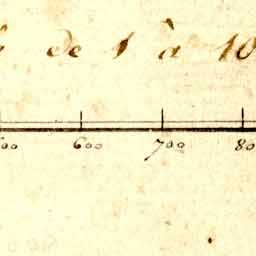 de 1 à 10
600 700 80